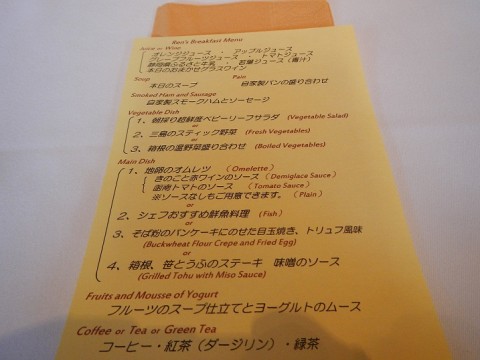 Ren's Breakfast Menu
Juice or Wine
オレンジジュース ・ アップルジュース
グレープフルーツジュース ・ トマトジュース
静岡県ふるさと牛乳 ・ 若葉ジュース（青汁）
本日のおまかせグラスワイン
Soup Pain
本日のスープ 自家製パンの盛り合わせ
Smoked Ham and Sausage
自家製スモークハムとソーセージ
Vegetable Dish
1、朝採り超鮮度ベビーリーフサラダ (Vegetable Salad)
or
2、三島のスティック野菜 (Fresh Vegetables)
or
3、箱根の温野菜盛り合わせ (Boiled Vegetables)
Main Dish
1、地卵のオムレツ （Omelette）
きのこと赤ワインのソース （Demiglace Sauce）
函南トマトのソース （Tomato Sauce）
※ソースなしもご用意できます。（Plain）
or
2、シェフおすすめ鮮魚料理 （Fish）
or
3、そば粉のパンケーキにのせた目玉焼き、トリュフ風味
(Buckwheat Flour Crepe and Fried Egg)
or
4、箱根、笹とうふのステーキ 味噌のソース
(Grilled Tohu with Miso Sauce)
Fruits and Mousse of Yogurt
フルーツのスープ仕立てとヨーグルトのムース
Coffee or Tea or Green Tea
コーヒー・紅茶（ダージリン）・緑茶